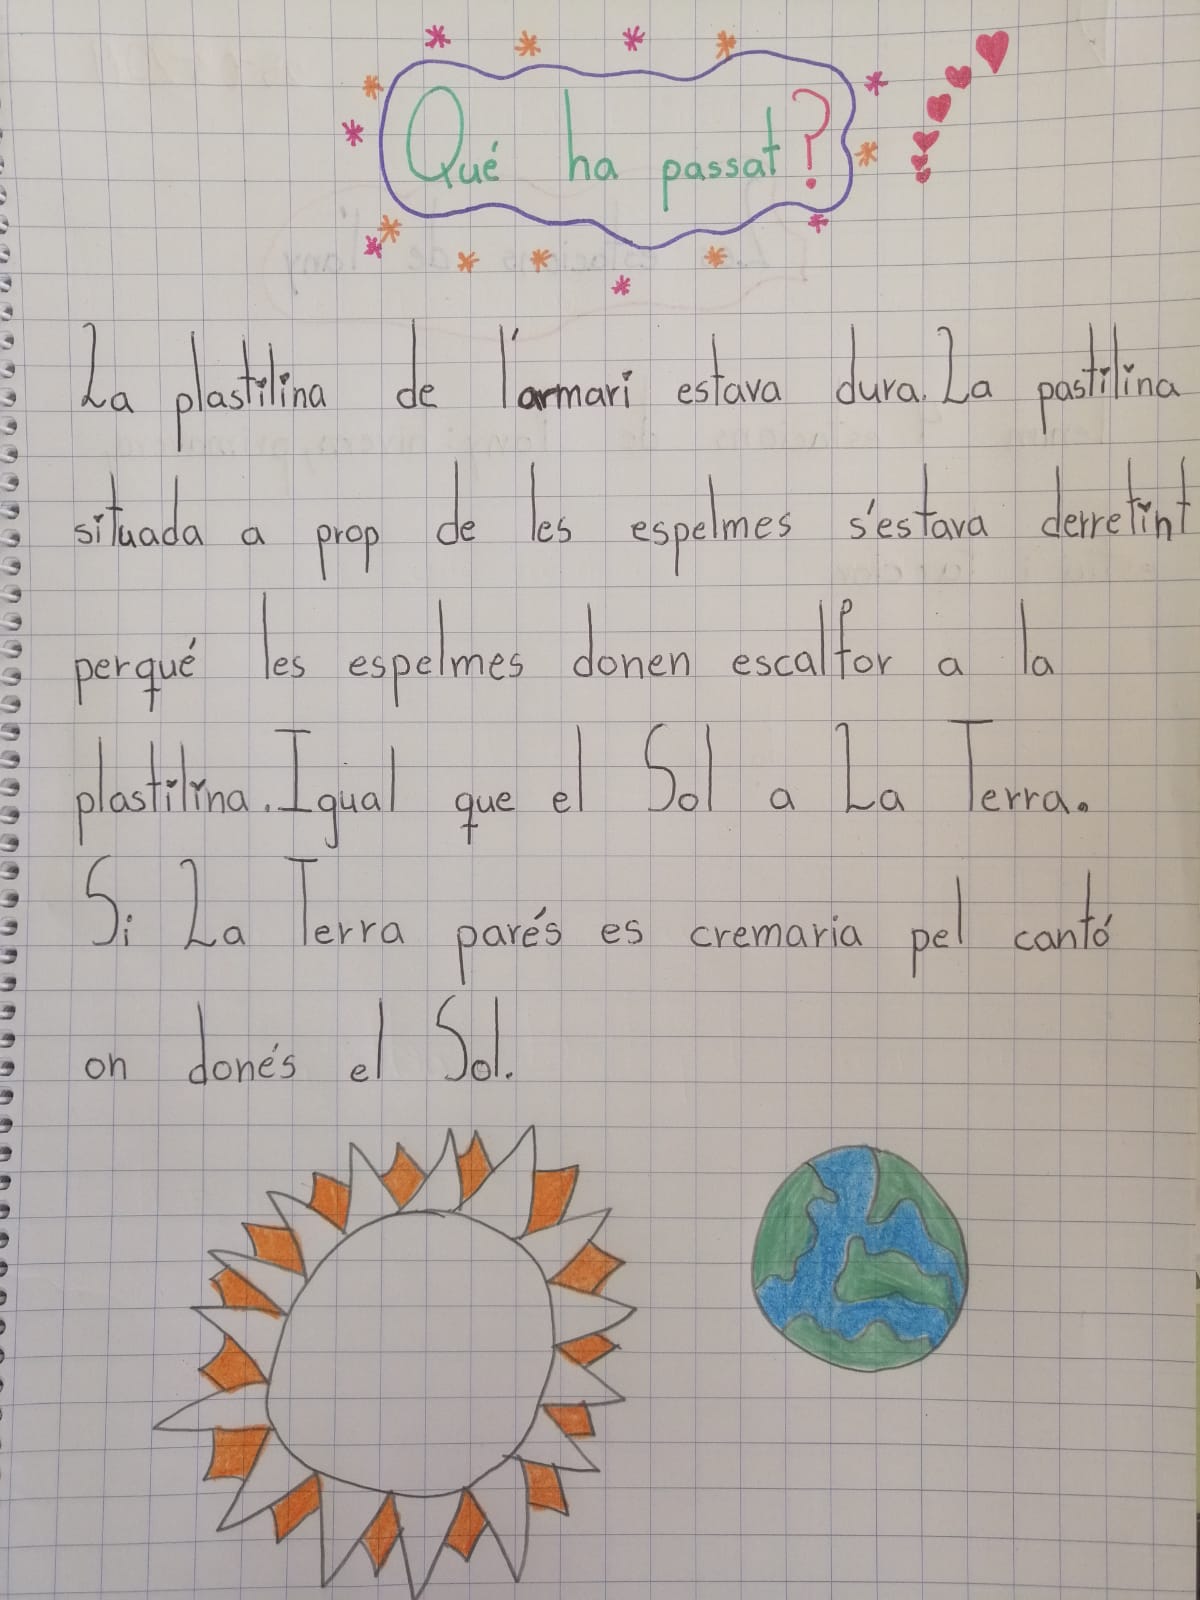 Qué ha passat?
La plastilina de l'armari estava dura. La pastilina
situada a prop de les espelmes s'estava derretint
perqué les espelmes donen escalfor a la
plastilina. Igual que el Sol a La Terra.
Si La Terra parés es cremaria pel cantó
on donés el Sol.